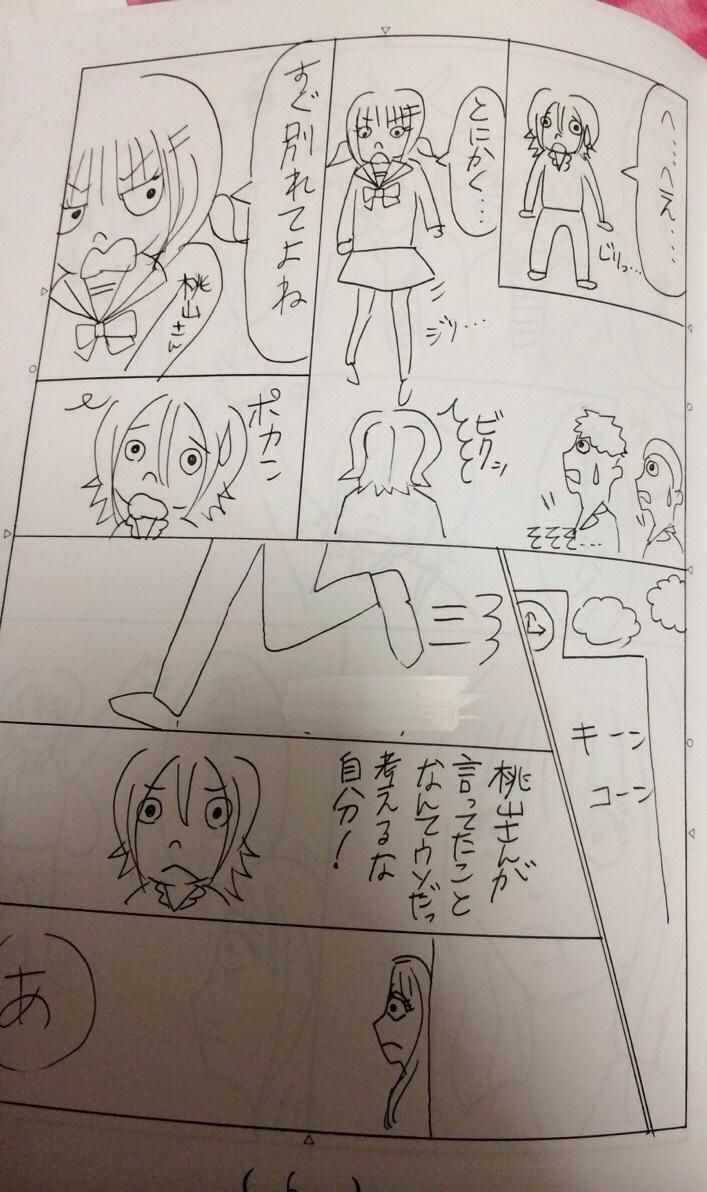 へ…へえ……
じりっ…
とにかく…
ジリ…
すぐ別れてよね
桃山さん
ビクン
そそそ…
ポカン
キーン
コーン
桃山さんが
言ってたこと
なんてウソだっ
考えるな
自分！
あ